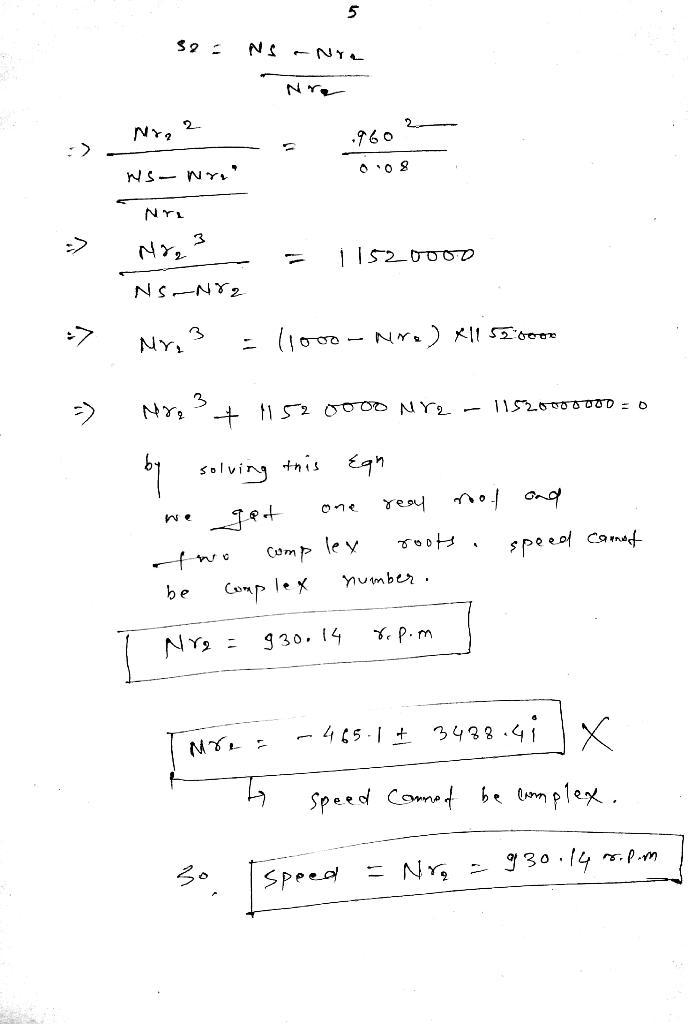 5
S2 = NS - Nr2
Nr2
=> Nr2 2 = .960 2
NS - Nr2 0.08
Nr2
=> Nr2 3 = 11520000
NS - Nr2
=> Nr2 3 = (1000 - Nr2) × 11520000
=> Nr2 3 + 11520000 Nr2 - 11520000000 = 0
by solving this Eqn
we get one real root and
two complex roots. speed cannot
be complex number.
Nr2 = 930.14 r.p.m
Nr2 = - 465.1 ± 3488.4i X
↳ speed cannot be complex.
So, speed = Nr2 = 930.14 r.p.m